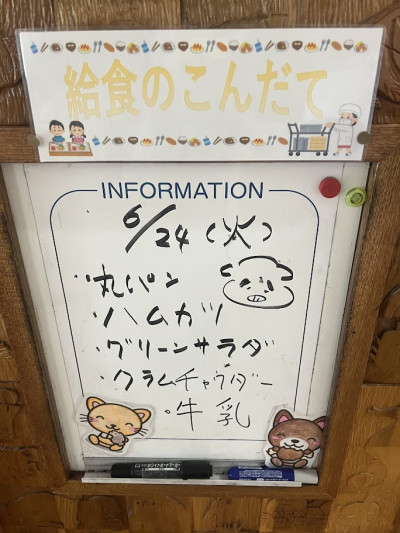 給食のこんだて
INFORMATION
6/24(火)
・丸パン
・ハムカツ
・グリーンサラダ
・クラムチャウダー
・牛乳